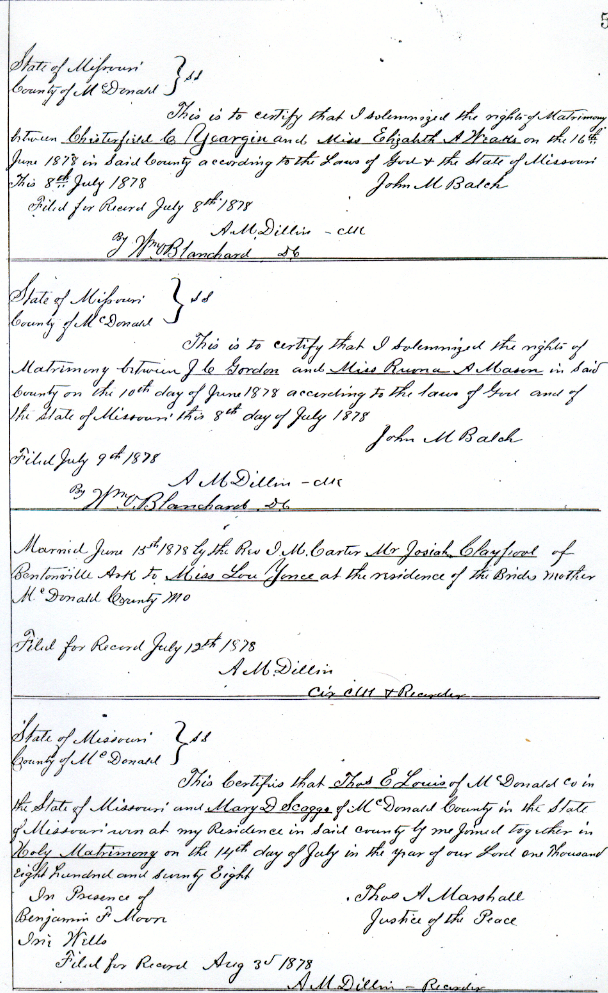 5
State of Missouri } ss
County of McDonald
This is to certify that I solemnized the rights of Matrimony
between Chisterfield C Yeargin and Miss Elizabeth A Weaks on the 16th
June 1878 in said County according to the Laws of God & the State of Missouri
This 8th July 1878 John M Balch
Filed for Record July 8th 1878
A M Dillin - Clk
By Wm O Blanchard DC
State of Missouri } ss
County of McDonald
This is to certify that I solemnized the rights of
Matrimony between J C Gordon and Miss Ruona A Mason in said
County on the 10th day of June 1878 according to the laws of God and of
the State of Missouri this 8th day of July 1878
John M Balch
Filed July 9th 1878
A M Dillin - Clk
By Wm O. Blanchard DC
Married June 15th 1878 by the Rev I. M. Carter Mr Josiah Claypool of
Bentonville Ark to Miss Lou Yonce at the residence of the Brides mother
McDonald County Mo
Filed for Record July 12th 1878
A M Dillin
Cir Clk & Recorder
State of Missouri } ss
County of McDonald
This Certifies that Thos E Louis of McDonald Co in
the State of Missouri and Mary D Scaggs of McDonald County in the State
of Missouri were at my Residence in said county by me Joined together in
Holy Matrimony on the 14th day of July in the year of our Lord one Thousand
Eight hundred and seventy Eight
In Presence of Thos A Marshall
Benjamin F Moon Justice of the Peace
Wills
Filed for Record Aug 3d 1878
A M Dillin - Recorder